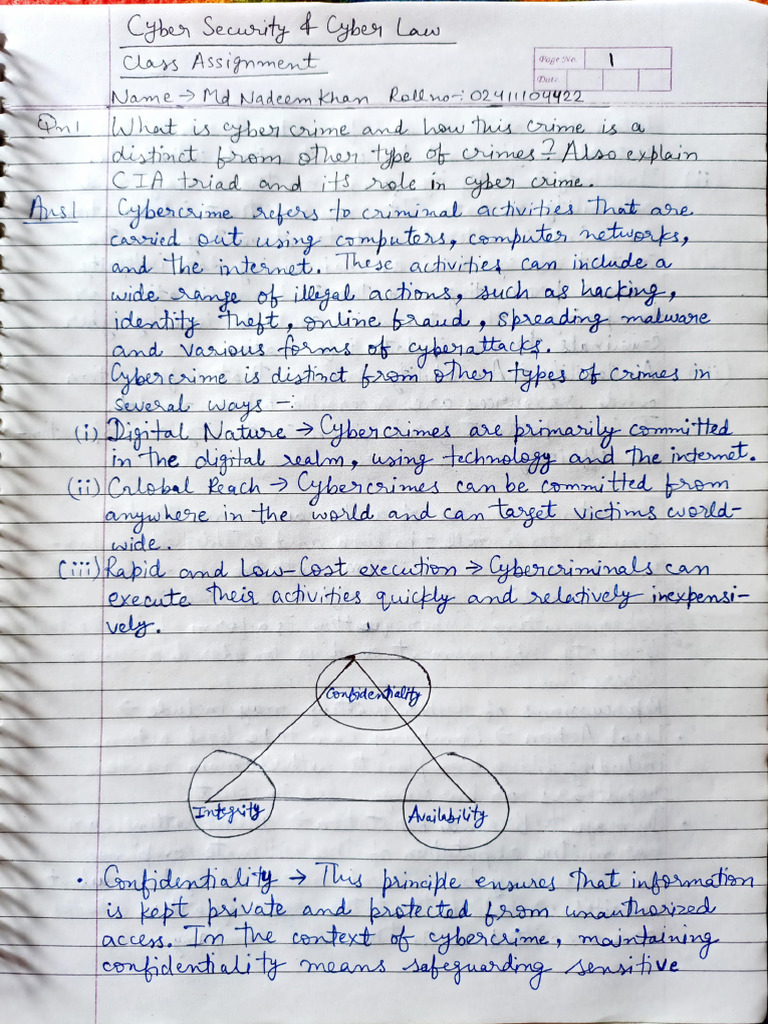 Cyber Security & Cyber Law
Class Assignment
Page No. 1
Date
Name → Md Nadeem Khan Roll no-: 02411104422
Qn1 What is cyber crime and how this crime is a
distinct from other type of crimes? Also explain
CIA triad and its role in cyber crime.
Ans1 Cybercrime refers to criminal activities that are
carried out using computers, computer networks,
and the internet. These activities can include a
wide range of illegal actions, such as hacking,
identity theft, online fraud, spreading malware
and various forms of cyberattacks.
Cybercrime is distinct from other types of crimes in
several ways –:
(i) Digital Nature → Cybercrimes are primarily committed
in the digital realm, using technology and the internet.
(ii) Global Reach → Cybercrimes can be committed from
anywhere in the world and can target victims world-
wide.
(iii) Rapid and Low-Cost execution → Cybercriminals can
execute their activities quickly and relatively inexpensi-
vely.
Confidentiality
Integrity Availability
• Confidentiality → This principle ensures that information
is kept private and protected from unauthorized
access. In the context of cybercrime, maintaining
confidentiality means safeguarding sensitive